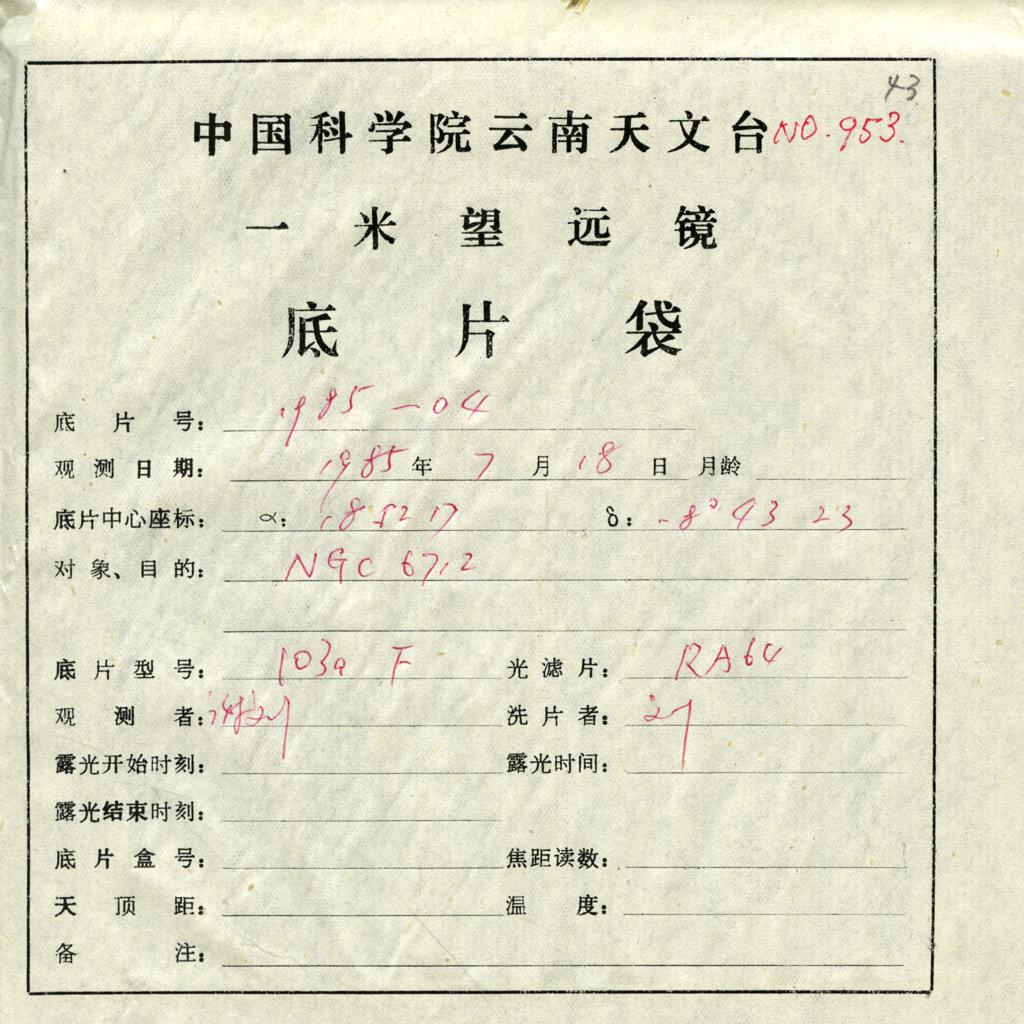 43
中国科学院云南天文台 NO.953.
一米望远镜
底片袋
底片号: 1985-04
观测日期: 1985年 7月 18日 月龄
底片中心座标: α: 18 52 17 δ: -8° 43 23
对象、目的: NGC 6712
底片型号: 103a F 光滤片: RA64
观测者: 刘 洗片者: 刘
露光开始时刻: 露光时间:
露光结束时刻:
底片盒号: 焦距读数:
天顶距: 温度:
备注: